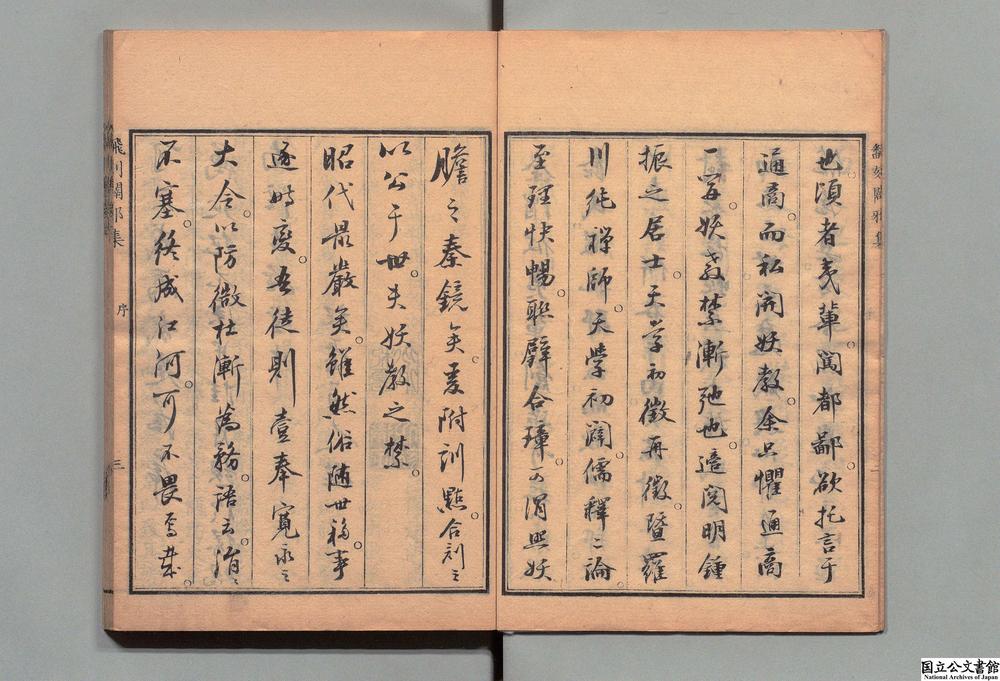 飜刻闢邪集
也頃者夷輩闖都鄙。欲托言于
通商。而私開妖教。余只懼通商
一宥。妖教禁漸弛也。適閱明鍾
振之居士。天学初徵再徵。曁羅
川純禅師。天学初闢。儒釋二論
至理快暢。聯璧合璋。可謂照妖
膽之秦鏡矣。爰附訓點。合刻之
以公于世。夫妖教之禁。
昭代最嚴矣。雖然俗随世移。事
逐時変。吾徒則壹奉寛永之
大令。以防微杜漸為務。語云。涓〻
不塞。終成江河。可不畏焉哉。
飜刻闢邪集
序
三
国立公文書館
National Archives of Japan